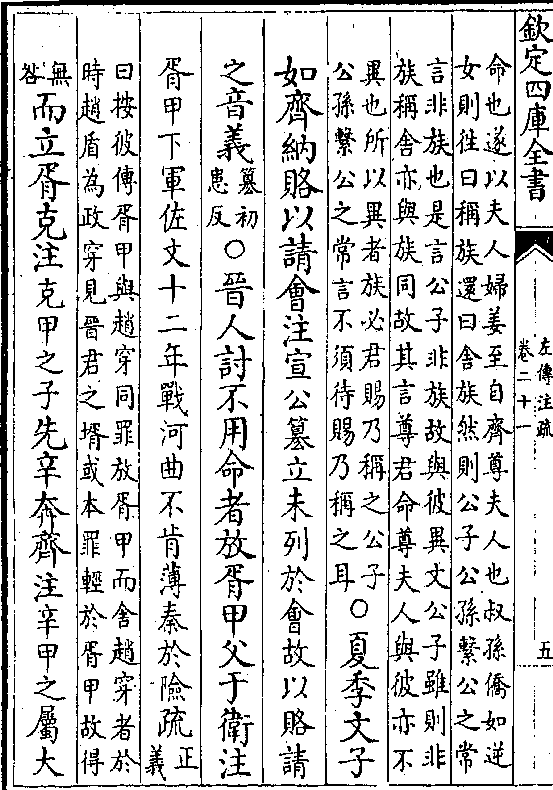 欽定四庫全書
左傳注疏
卷二十一
五
命也遂以夫人婦姜至自齊尊夫人也叔孫僑如逆
女則往曰稱族還曰舍族然則公子公孫繫公之常
言非族也是言公子非族故與彼異文公子雖則非
族稱舍亦與族同故其言尊君命尊夫人與彼亦不
異也所以異者族必君賜乃稱之公子
公孫繫公之常言不須待賜乃稱之耳
○夏季文子
如齊納賂以請會注宣公簒立未列於會故以賂請
之音義簒初
患反
○晉人討不用命者放胥甲父于衛注
胥甲下軍佐文十二年戰河曲不肯薄秦於險疏正
義
曰按彼傳胥甲與趙穿同罪放胥甲而舍趙穿者於
時趙盾為政穿見晉君之壻或本罪輕於胥甲故得
無
咎
而立胥克注克甲之子先辛奔齊注辛甲之屬大